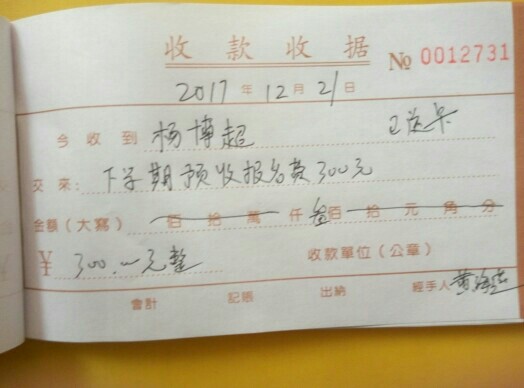 收款收据
№ 0012731
2017年12月21日
今收到 杨博超 已送卡
交来：下学期预收报名费300元
金額（大寫） 佰拾萬仟叁佰拾元角分
¥ 300.～元整 收款單位（公章）
會計 記賬 出納 經手人 黄